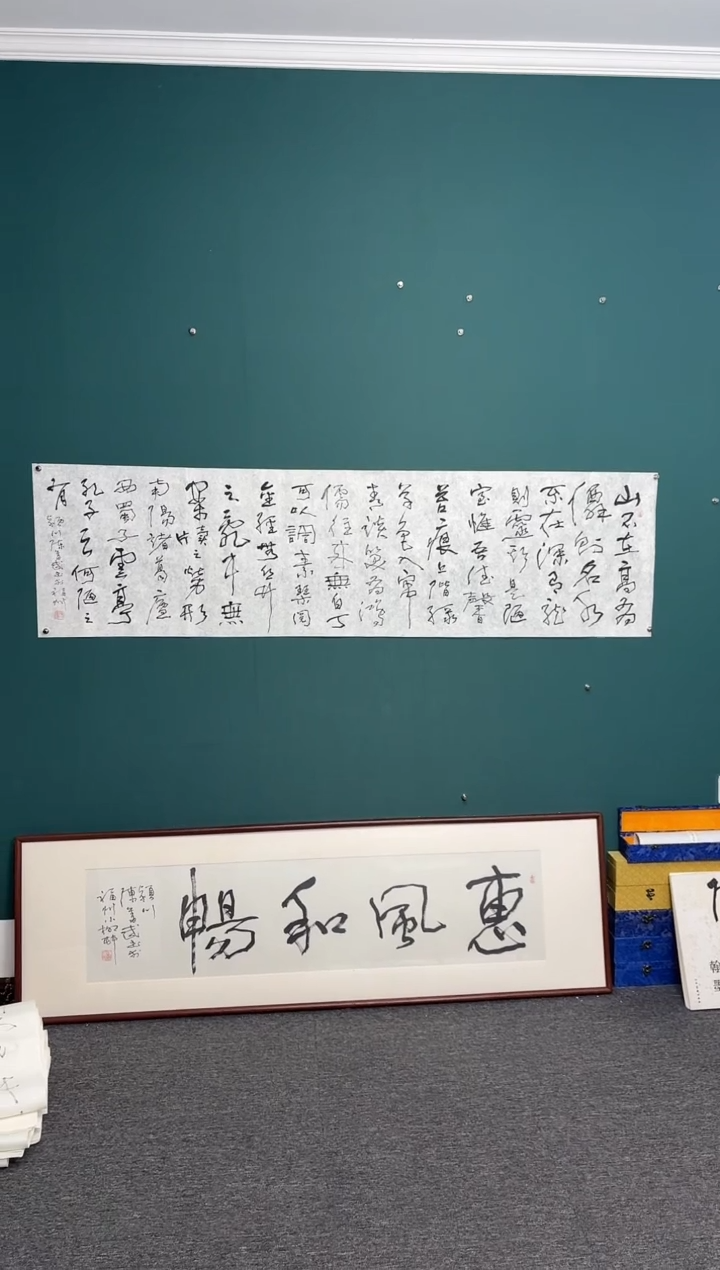 山不在高有
僊則名水
不在深有龍
則靈斯是陋
室惟吾德馨
苔痕上階綠
草色入簾
青談笑有鴻
儒往來無白丁
可以調素琴閱
金經無絲竹
之亂耳無
案牘之勞形
南陽諸葛廬
西蜀子雲亭
孔子云何陋之
有
惠風和暢
潁川
翰墨